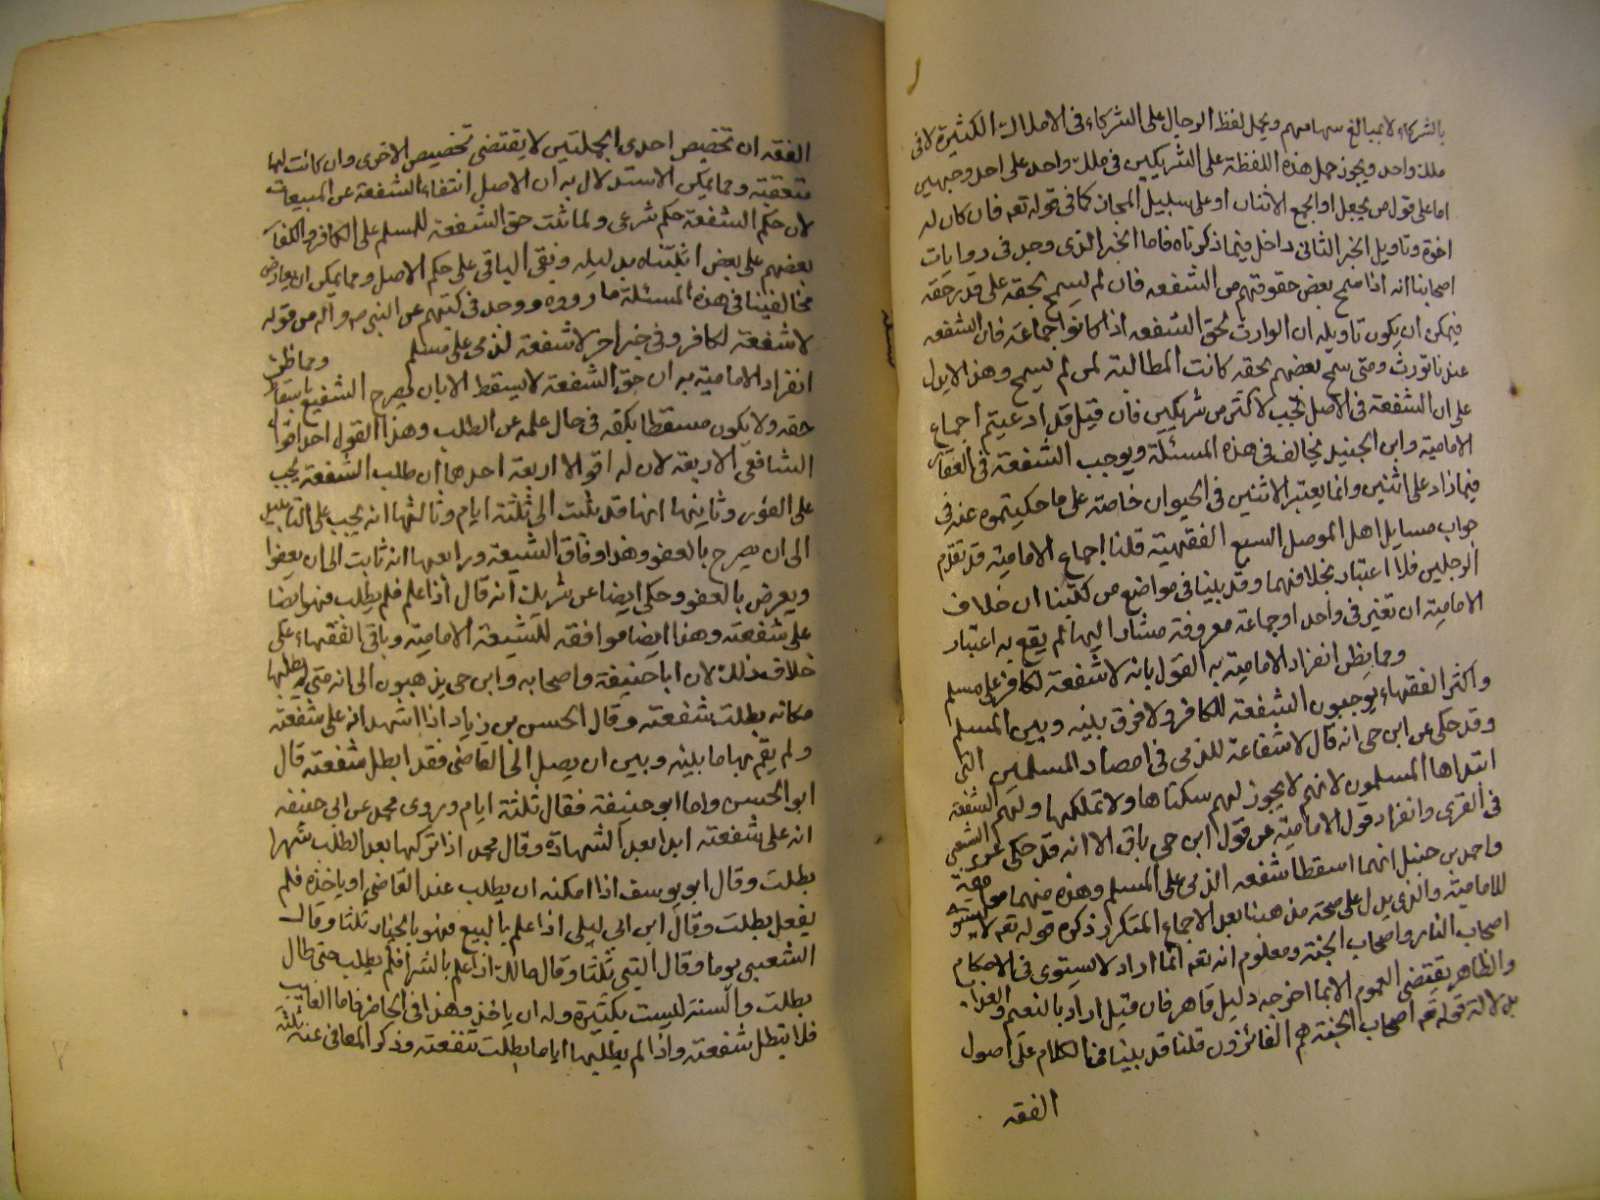 بالشركاء لا بمبالغ سهامهم ويحمل لفظ الرجال على الشركاء فى الاملاك الكثيرة لا فى
ملك واحد ويجوز حمل هذه اللفظة على الشريكين فى ملك واحد على احد وجهين
اما على قول من يجعل اول الجمع الاثنان او على سبيل المجاز كما فى قوله تعم فان كان له
اخوة وتاويل الخبر الثانى داخل فيما ذكرناه فاما الخبر الذى وجد فى روايات
اصحابنا انه اذا سمح بعض حقوقهم من الشفعه فان لم يسمح بحقه على قدر حقه
فيمكن ان يكون تاويله ان الوارث لحق الشفعه اذا كانوا جماعة فان الشفعه
عندنا تورث ومتى سمح بعضهم بحقه كانت المطالبة لمن لم يسمح وهذا لا يدل
على ان الشفعة فى الاصل تجب لاكثر من شريكين فان قيل قد ادعيتم اجماع
الامامية وابن الجنيد يخالف فى هذه المسئلة ويوجب الشفعة فى العقار
فيما زاد على اثنين وانما يعتبر الاثنين فى الحيوان خاصة على ما حكيتموه عنه فى
جواب مسايل اهل الموصل السبع الفقهية قلنا اجماع الامامية قد تقدم
الرجلين فلا اعتبار بخلافهما وقد بينا فى مواضع من كتبنا ان خلاف
الامامية ان تعين فى واحد او جماعة معروفة مشار اليها لم يقع به اعتبار
ومما يظن انفراد الامامية به القول بانه لا شفعة لكافر على مسلم
واكثر الفقهاء يوجبون الشفعة للكافر ولا فرق بينه وبين المسلم
وقد حكى عن ابن حى انه قال لا شفاعة للذمى فى امصار المسلمين التى
ابتداها المسلمون لانهم لا يجوز لهم سكناها ولا تملكها ولهم الشفعة
فى القرى وانفراد قول الامامية عن قول ابن حى باق الا انه قد حكى عن الشعبى
واحمد بن حنبل انهما اسقطا شفعه الذمى على المسلم وهذه منهما موافقة
للامامية والذى يدل على صحة مذهبنا بعد الاجماع المتكرر ذكره قوله تعم لا يستوى
اصحاب النار واصحاب الجنة ومعلوم انه تعم انما اراد لا يستوى فى الاحكام
والظاهر يقتضى العموم الا ما اخرجه دليل قاهر فان قيل اراد بالنعيم والعذاب
بدلالة قوله تعم اصحاب الجنة هم الفائزون قلنا قد بينا فى الكلام على اصول
الفقه
الفقه ان تخصيص احدى الجملتين لا يقتضى تخصيص الاخرى وان كانت لها
متعقبة ومما يمكن الاستدلال به ان الاصل انتفاء الشفعة عن المبيعات
لان حكم الشفعة حكم شرعى ولما ثبت حق الشفعة للمسلم على الكافر وللكفار
بعضهم على بعض اثبتناه بدليله وبقى الباقى على حكم الاصل ومما يمكن ان يعارض
مخالفينا فى هذه المسئلة ما رووه ووجد فى كتبهم عن النبى ص وآله من قوله
لا شفعة لكافر وفى خبر اخر لا شفعة لذمى على مسلم ومما ظن
انفراد الامامية به ان حق الشفعة لا يسقط الا بان يصرح الشفيع باسقاط
حقه ولا يكون مسقطا بكفه فى حال علمه عن الطلب وهذا القول احد اقوال
الشافعى الاربعة لان له اقوالا اربعة احدها ان طلب الشفعة يجب
على الفور وثانيها انها قد ثبتت الى ثلثة ايام وثالثها انه يجب على التابيد
الى ان يصرح بالعفو وهذا وفاق الشيعة ورابعها انه ثابت الى ان يعفوا
ويعرض بالعفو وحكى ايضا عن شريك انه قال اذا علم فلم يطلب فهو ايضا
على شفعته وهذا ايضا موافقه للشيعة الامامية وباقى الفقهاء على
خلاف ذلك لان ابا حنيفة واصحابه وابن حى يذهبون الى انه متى لم يطلبها
مكانه بطلت شفعته وقال الحسن بن زياد اذا اشهد انه على شفعته
ولم يقم بها ما بينه وبين ان يصل الى القاضى فقد ابطل شفعته قال
ابو الحسن واما ابو حنيفة فقال ثلثة ايام وروى محمد عن ابى حنيفه
انه على شفعته ابدا بعد الشهادة وقال محمد اذا تركها بعد الطلب شهرا
بطلت وقال ابو يوسف اذا امكنه ان يطلب عند القاضى او ياخذه فلم
يفعل بطلت وقال ابن ابى ليلى اذا علم بالبيع فهو بالخيار ثلثا وقال
الشعبى يوما وقال البتى ثلثا وقال مالك اذا علم بالشرا فلم يطلب حتى طال
بطلت والسنة ليست بكثيرة وله ان ياخذ وهذا فى الحاضر فاما الغايب
فلا تبطل شفعته واذا لم يطلبها اياما بطلت شفعته وذكر المعافى عنه ثلثة